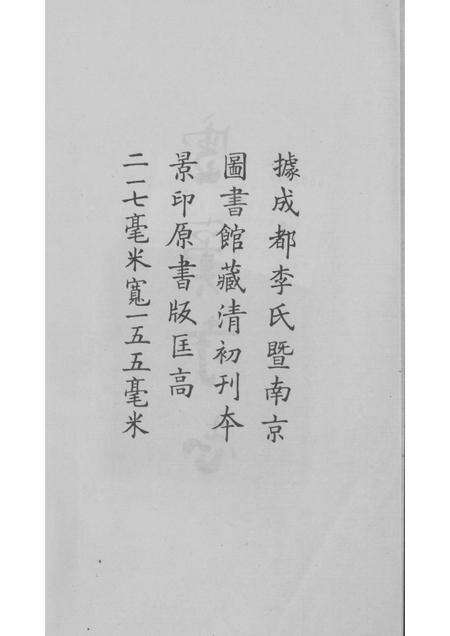 據成都李氏暨南京
圖書館藏清初刊本
景印原書版匡高
二一七毫米寬一五五毫米